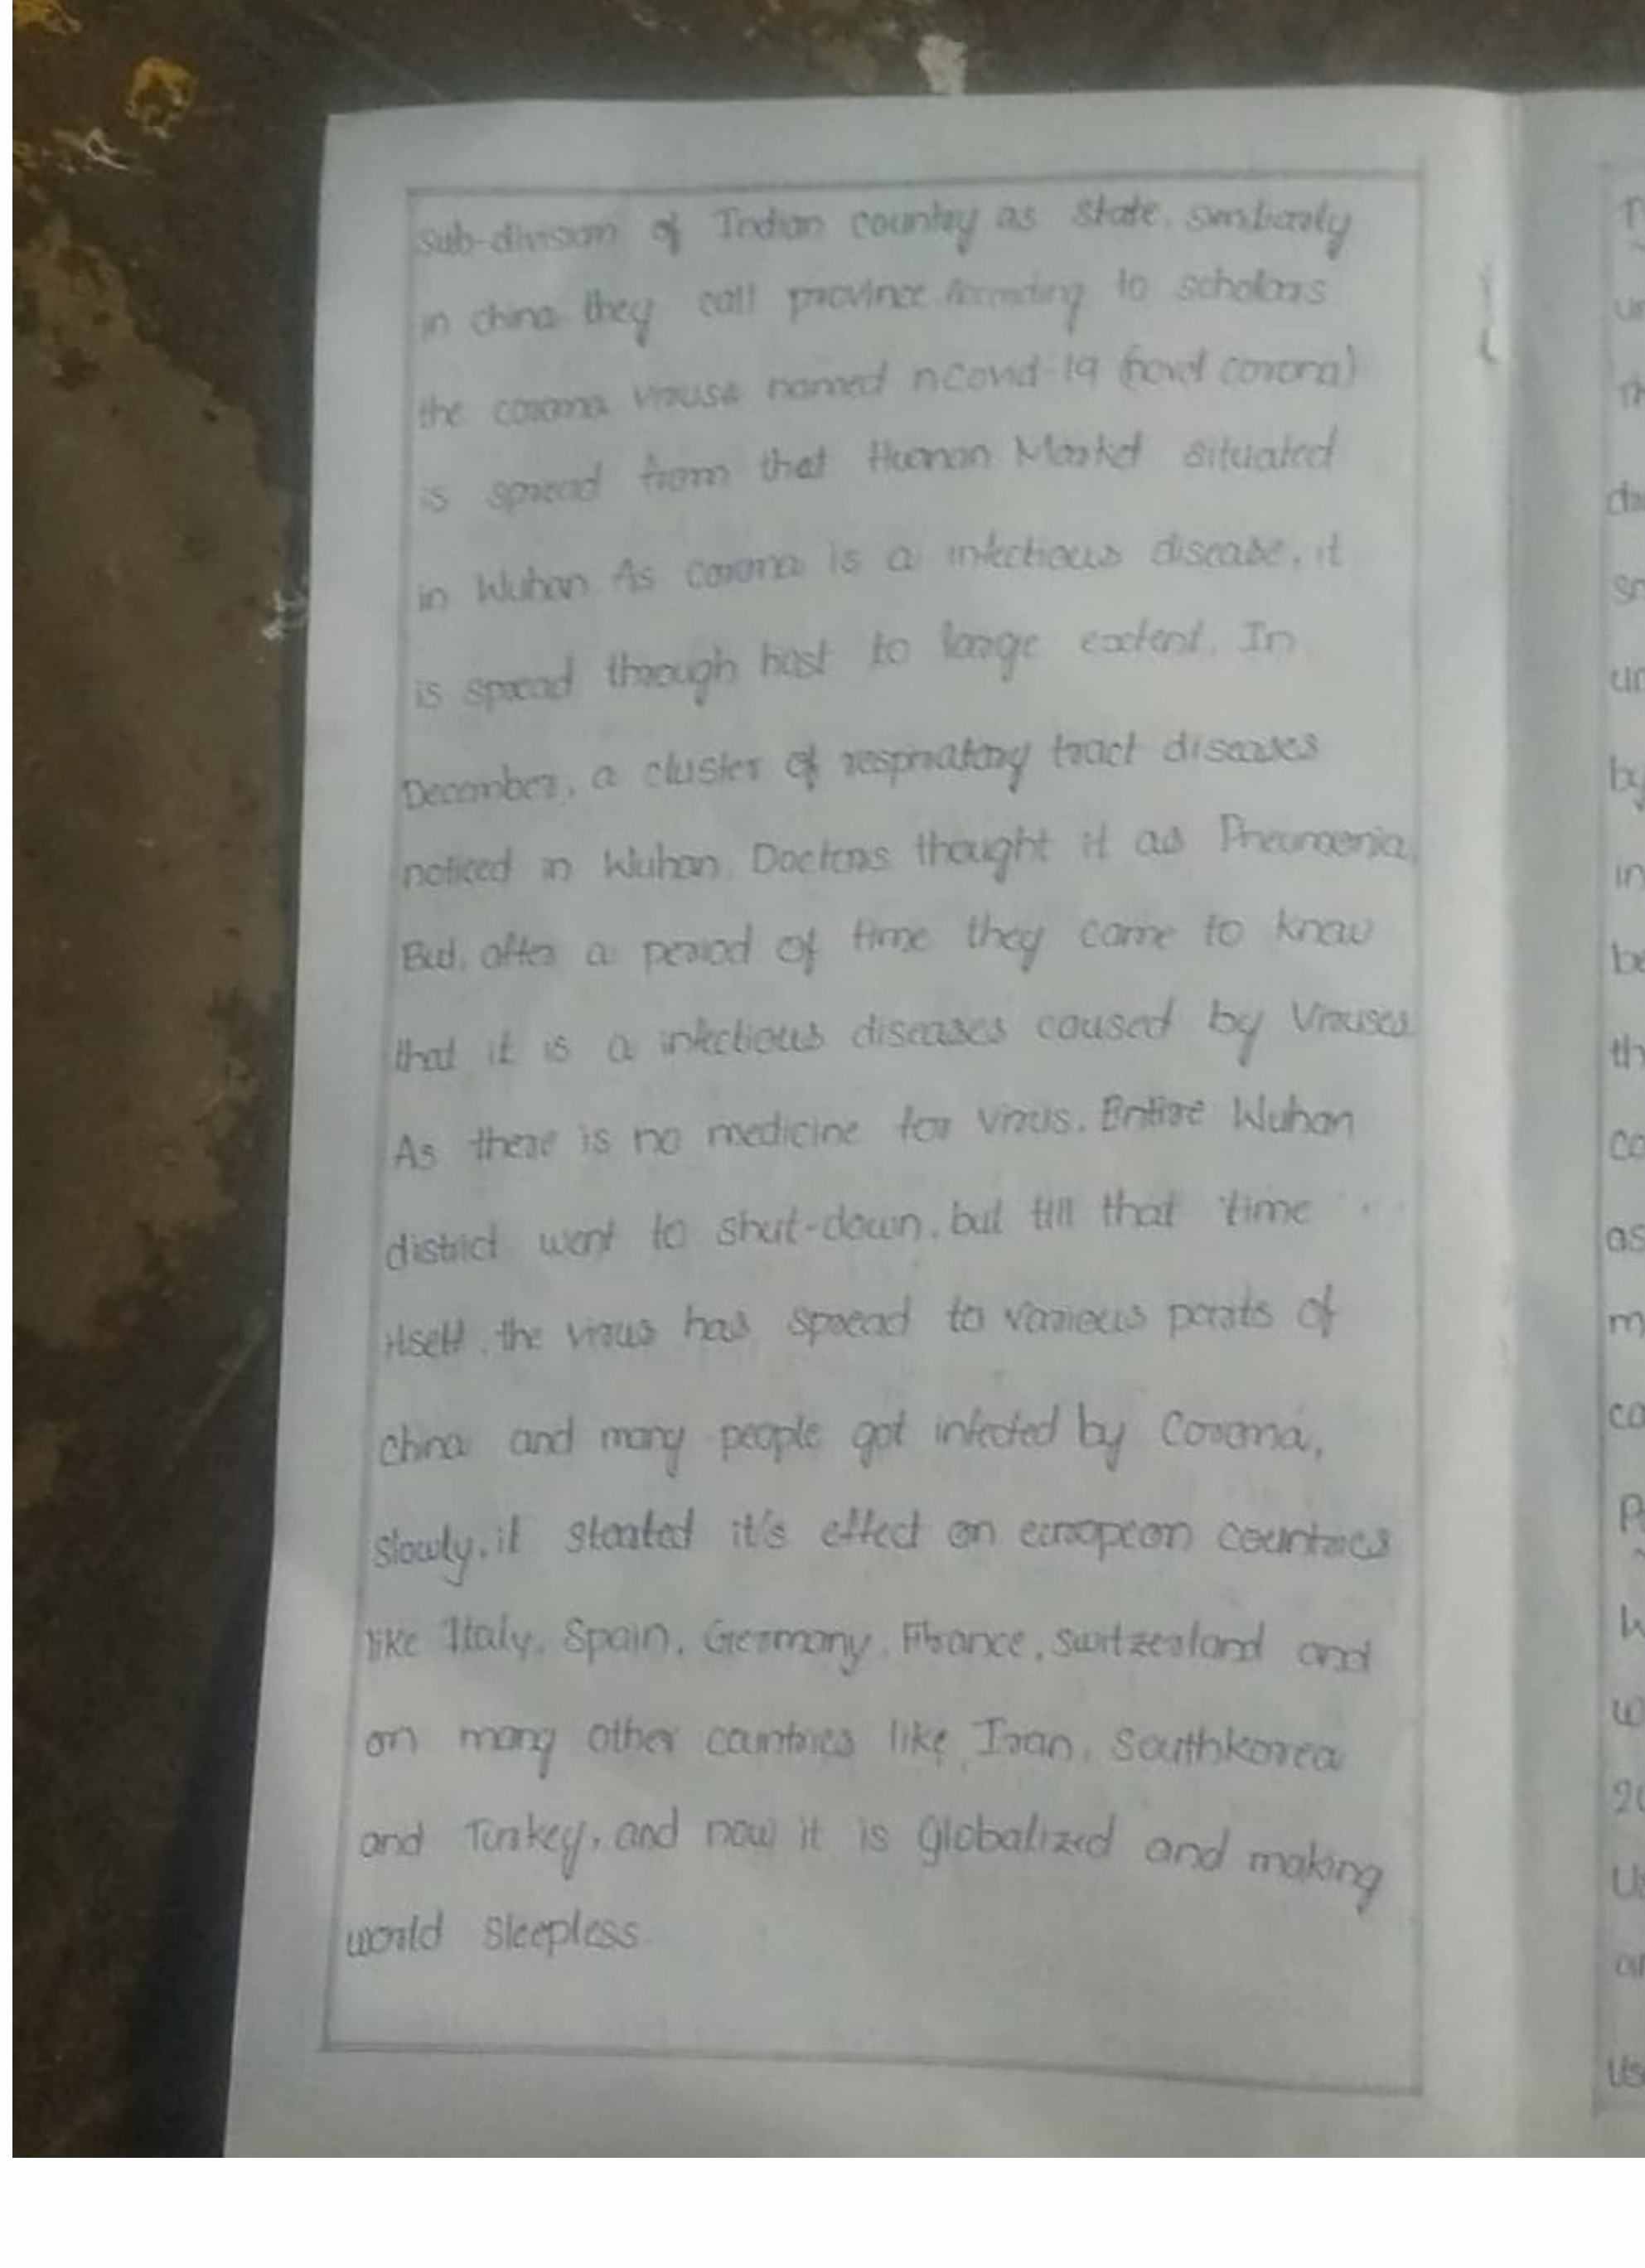 sub-division of Indian country as State. similarly
in china they call province. According to scholars
the corona viruse named nCovid-19 (novel corona)
is spread from that Huanan Market situated
in Wuhan. As corona is a infectious disease, it
is spread through host to large extent. In
December, a cluster of respiratory tract diseases
noticed in Wuhan. Doctors thought it as Pneumonia.
But, after a period of time they came to know
that it is a infectious diseases caused by Viruses
As there is no medicine for virus. Entire Wuhan
district went to shut-down, but till that time
itself, the virus has spread to various parts of
china and many people got infected by Corona,
slowly, it started it's effect on european countries
like Italy, Spain, Germany, France, switzerland and
on many other countries like Iran, Southkorea
and Turkey, and now it is Globalized and making
world Sleepless